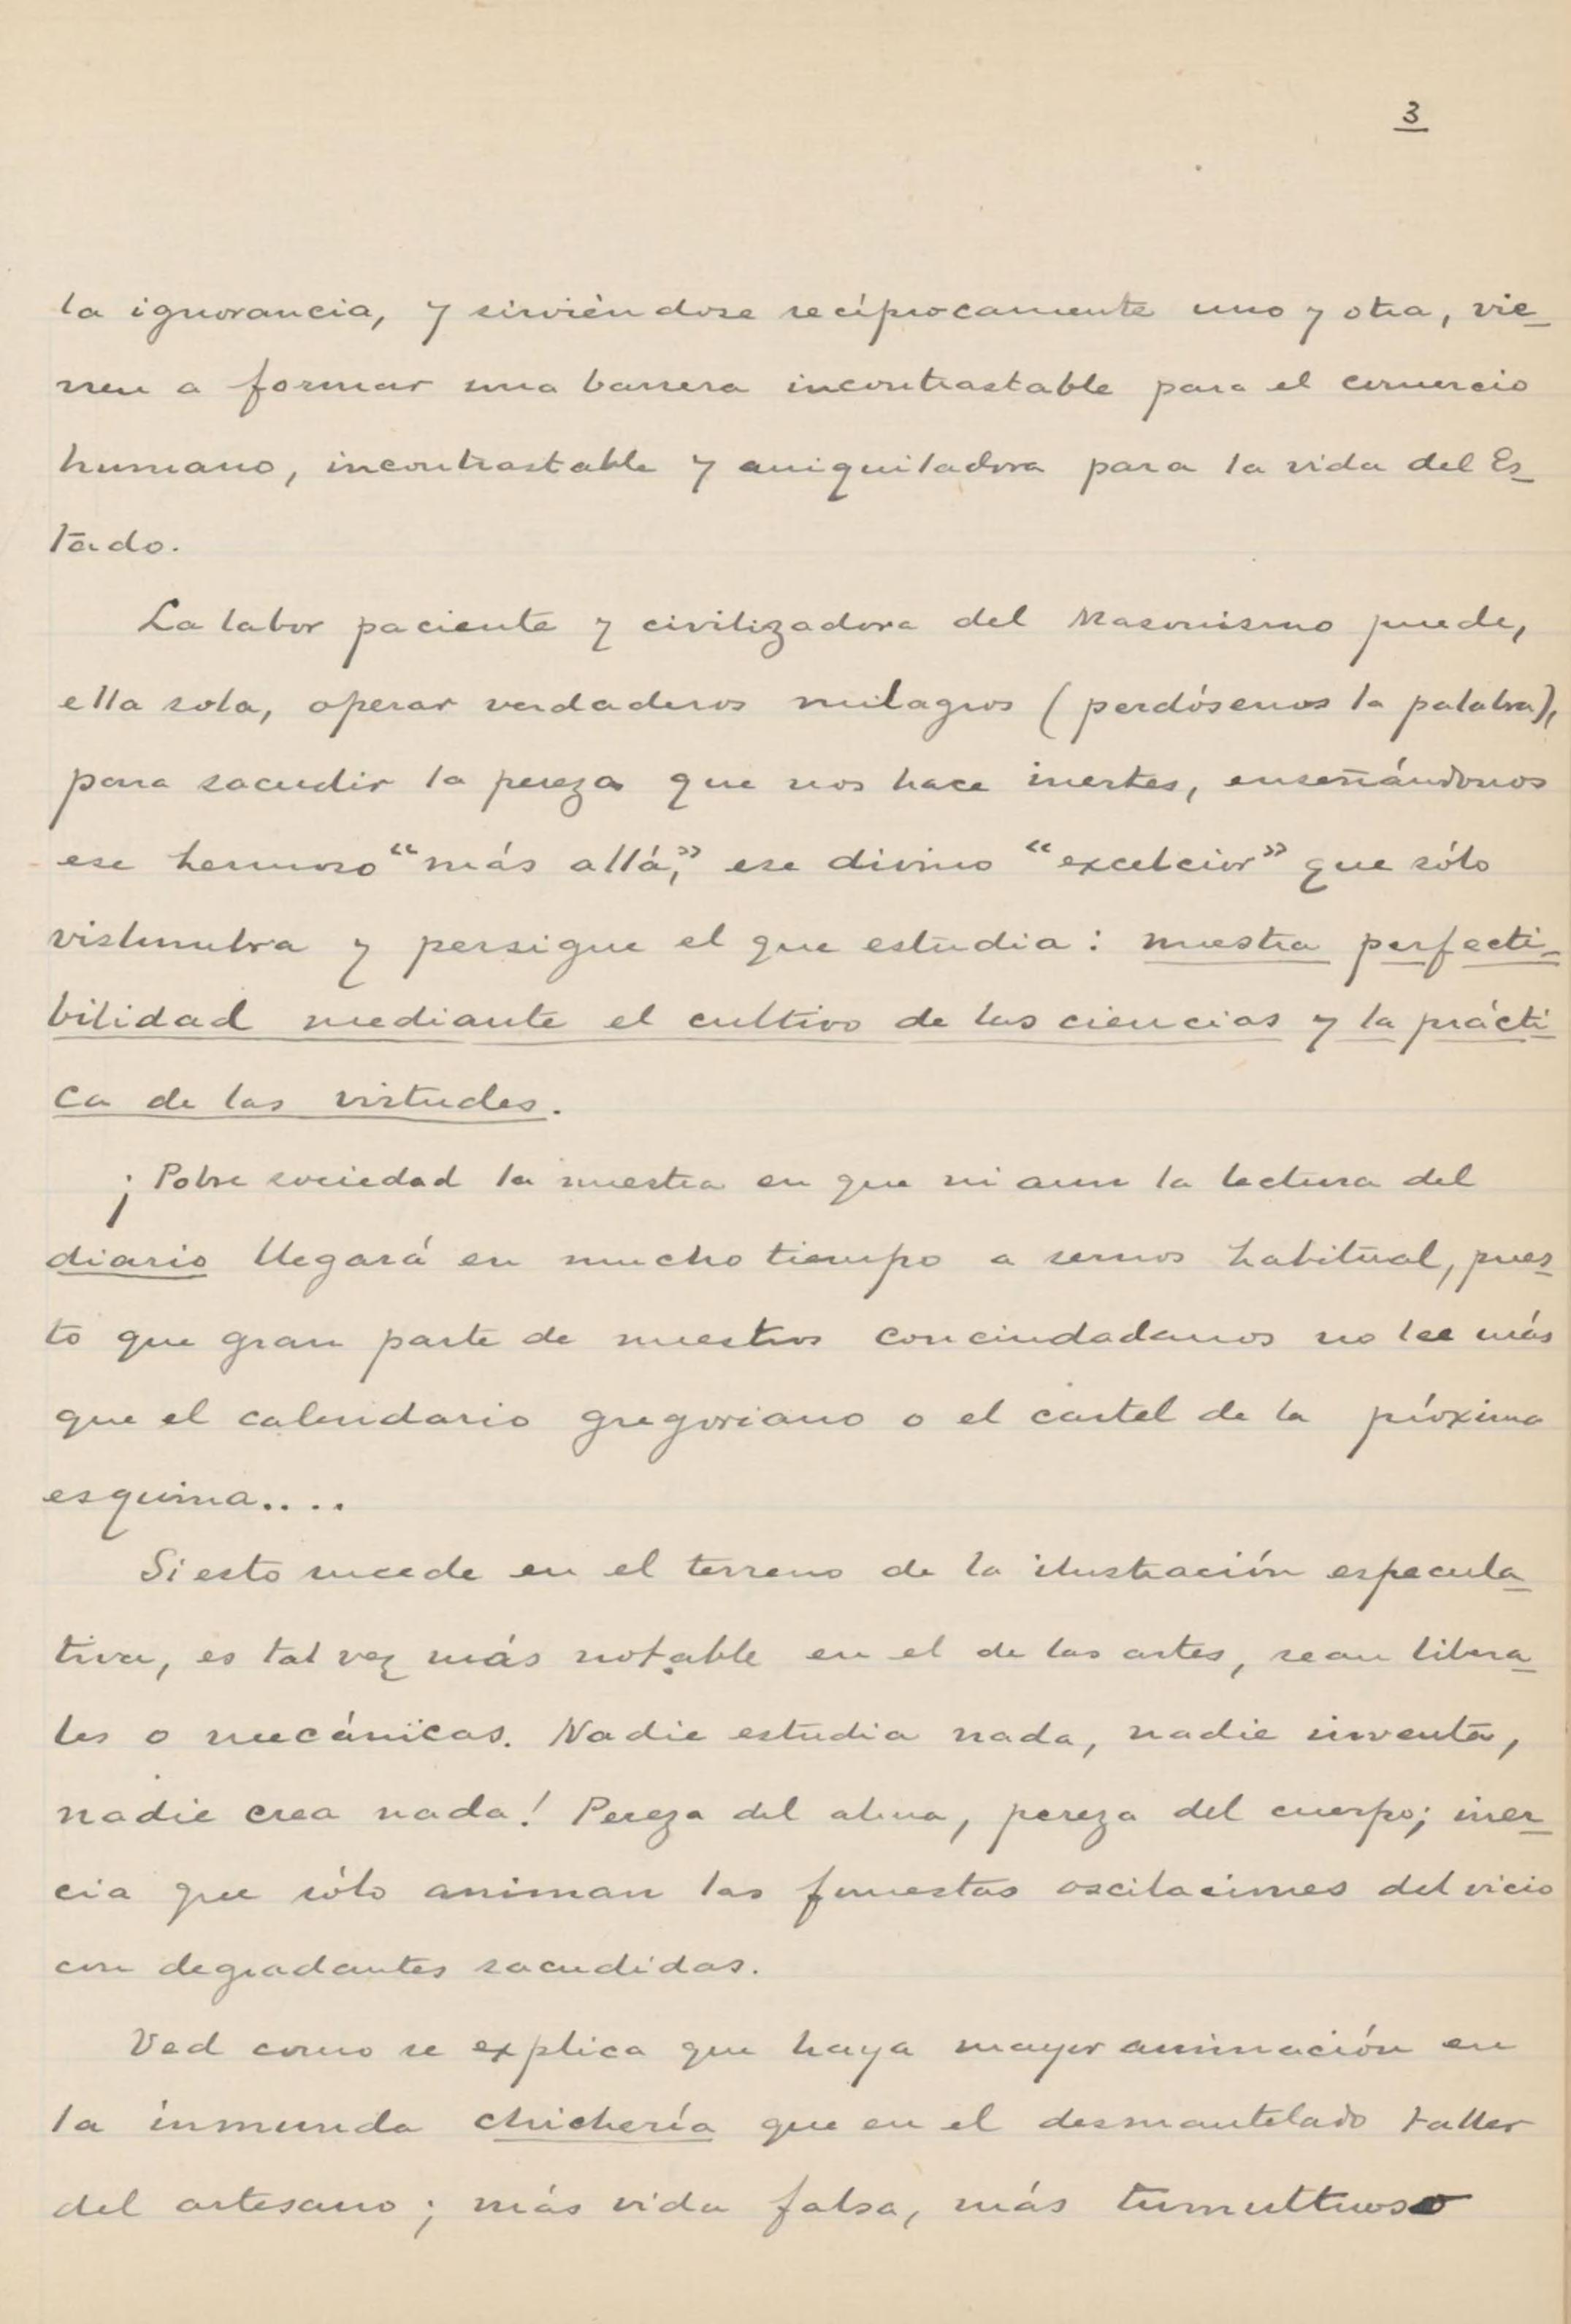 3
la ignorancia, y sirviéndose recíprocamente uno y otra, vie-
nen a formar una barrera incontrastable para el comercio
humano, incontrastable y aniquiladora para la vida del Es-
tado.
La labor paciente y civilizadora del Masonismo puede,
ella sola, operar verdaderos milagros (perdósenos la palabra),
para sacudir la pereza que nos hace inertes, enseñándonos
ese hermoso "más allá," ese divino "excelcior" que sólo
vislumbra y persigue el que estudia: nuestra perfecti-
bilidad mediante el cultivo de las ciencias y la prácti-
ca de las virtudes.
¡Pobre sociedad la nuestra en que ni aun la lectura del
diario llegará en mucho tiempo a sernos habitual, pues-
to que gran parte de nuestros conciudadanos no lee más
que el calendario gregoriano o el cartel de la próxima
esquina....
Si esto sucede en el terreno de la ilustración especula-
tiva, es tal vez más notable en el de las artes, sean libera-
les o mecánicas. Nadie estudia nada, nadie inventa,
nadie crea nada! Pereza del alma, pereza del cuerpo; iner-
cia que sólo animan las funestas oscilaciones del vicio
con degradantes sacudidas.
Ved como se explica que haya mayor animación en
la inmunda chichería que en el desmantelado taller
del artesano; más vida falsa, más tumultuoso